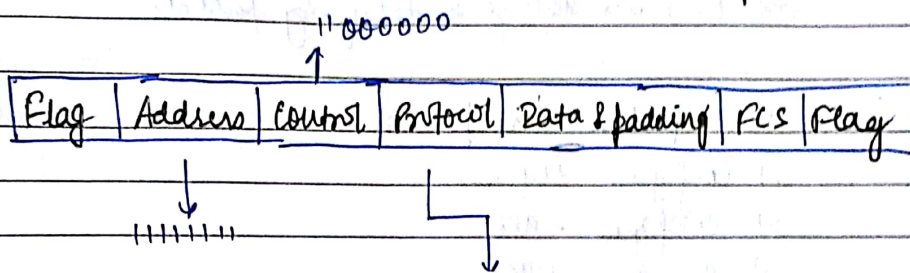 11000000
Flag Address Control Protocol Data & padding FCS Flag
11111111